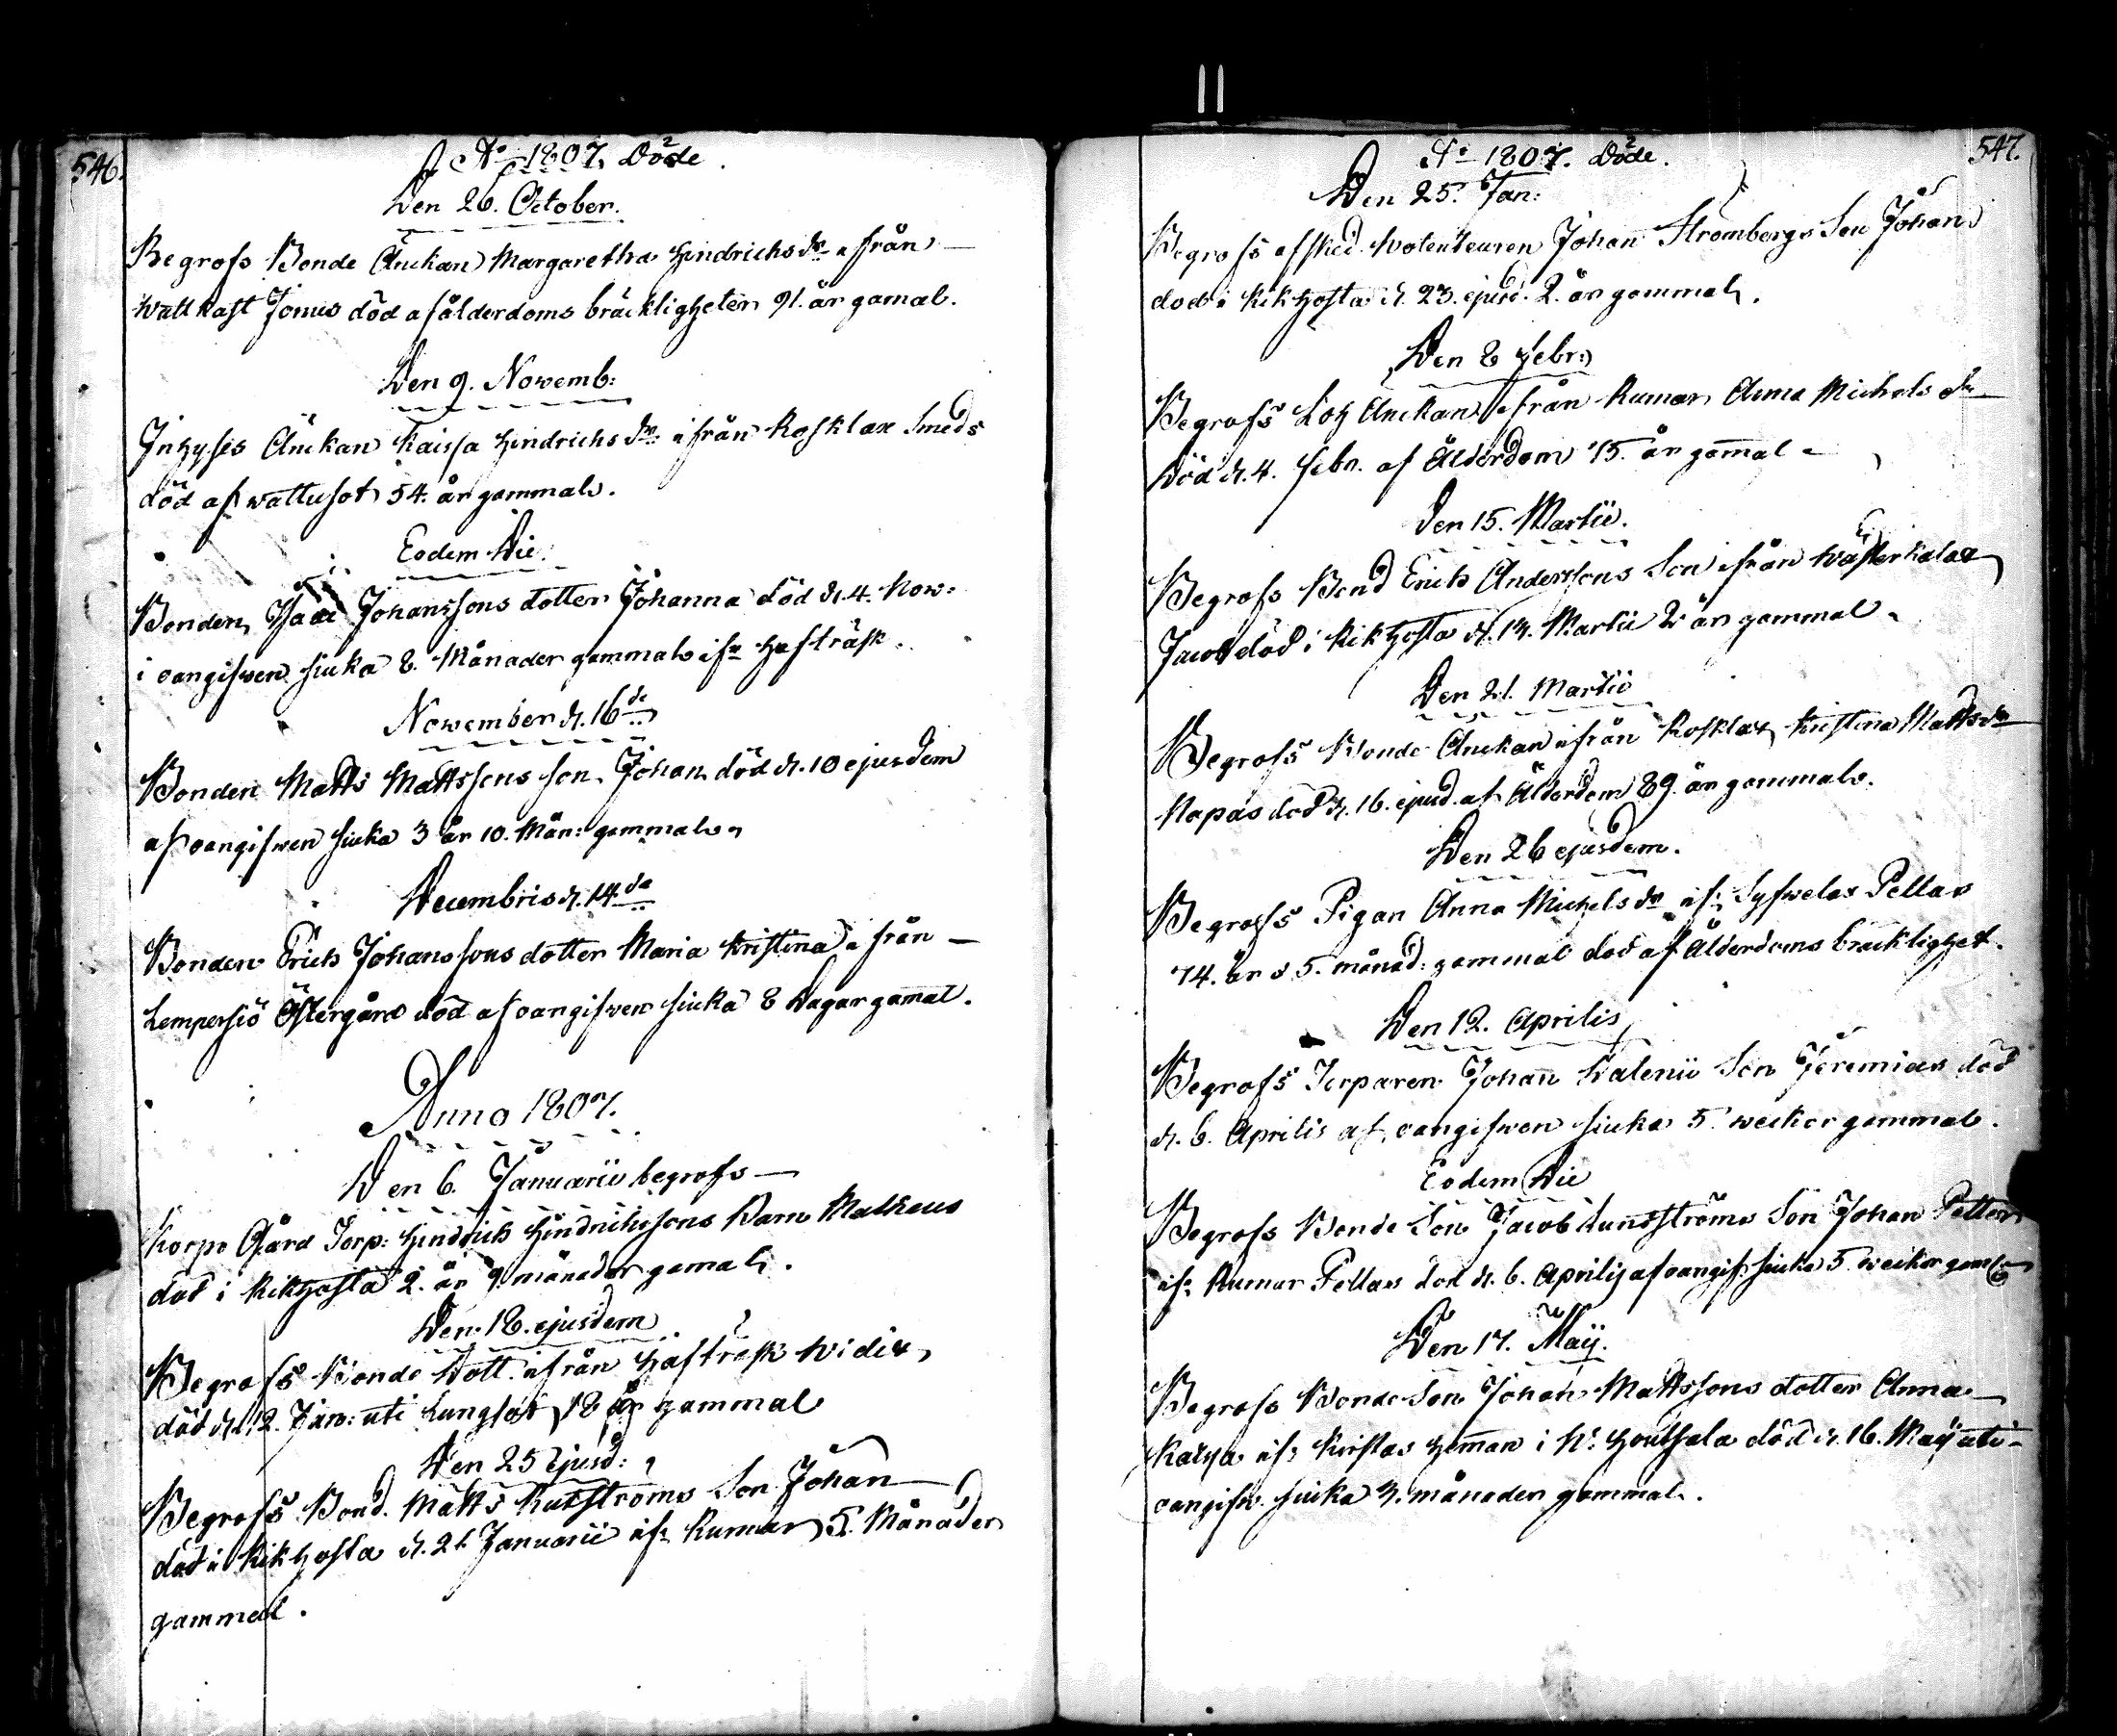 546.
Ao 1807. Döde.
Den 26. October.
Begrofs Bonde Änckan Margaretha Hindrichs dr ifrån
Wattkast Jönis död af ålderdoms bräckligheter 91. år gamal.
Den 9. Novemb:
Inhyses Änckan Kaissa Hindrichs dr ifrån Rosklax Smeds
död af wattusot 54. år gammal.
Eodem Die.
Bonden Isaac Johanssons dotter Johanna död d. 4. Nov:
i oangifwen siuka 8. Månader gammal ifr. Hafträsk.
November d. 16de
Bonden Matts Mattssons son Johan död d. 10 ejusdem
af oangifwen siuka 3 år 10. Mån: gammal.
Decembris d. 14de
Bonden Erich Johanssons dotter Maria Kristina ifrån
Lempersiö Östergård död af oangifwen siuka 8 dagar gamal.
Anno 1807.
Den 6. Januarii begrofs
Korpo Gård Torp: Hindrich Hindrichssons Barn Matheus
död i Kikhosta 2. år 9 månader gamal.
Den 18. ejusdem
Begrofs Bonde Dott. ifrån Hafträsk Widix
död d. 12. Jan: uti Lungsot 18 år gammal
Den 25 ejusd:
Begrofs Bond. Matts Ruthströms Son Johan
död i Kikhosta d. 21 Januarii ifr. Rumar 5. Månader
gammal.
547.
Ao 1807. Döde.
Den 25. Jan:
Begrofs afsked. Voteuteuren Johan Strömbergs Son Johan
död i Kikhosta d. 23. ejusd. 2. år gammal.
Den 8 Febr:
Begrofs Änckan ifrån Rumar Anna Michels dr
död d. 4. febr. af Ålderdom 75. år gamal
Den 15. Martii.
Begrofs Bond Erich Anderssons Son ifrån Wästerkalax
Jacob död i Kikhosta d. 13. Martii 2 år gammal.
Den 21. Martii
Begrofs Bonde Änckan ifrån Rosklax Kristina Matts dr
Napas död d. 16. ejusd. af Ålderdom 89. år gammal.
Den 26 ejusdem.
Begrofs Pigan Anna Michels dr ifr. Syfwelax Pellas
74. år o 5. månad: gammal död af Ålderdoms bräcklighet.
Den 12. Aprilis
Begrofs Torparen Johan Walenii Son Jeremias död
d. 6. Aprilis af oangifwen siuka 5. weckor gammal.
Eodem Die
Begrofs Bonde Son Jacob Lundströms Son Johan Petter
ifr. Rumar Pellas död d. 6. Aprilis af oangif. siuka 5. weckor gaml
Den 17. Maij.
Begrofs Bonde Son Johan Mattssons dotter Anna
Kaisa ifr. Kristas Hemman i N. Houtskala död d. 16. Maij uti
oangifw. siuka 3. månader gammal.